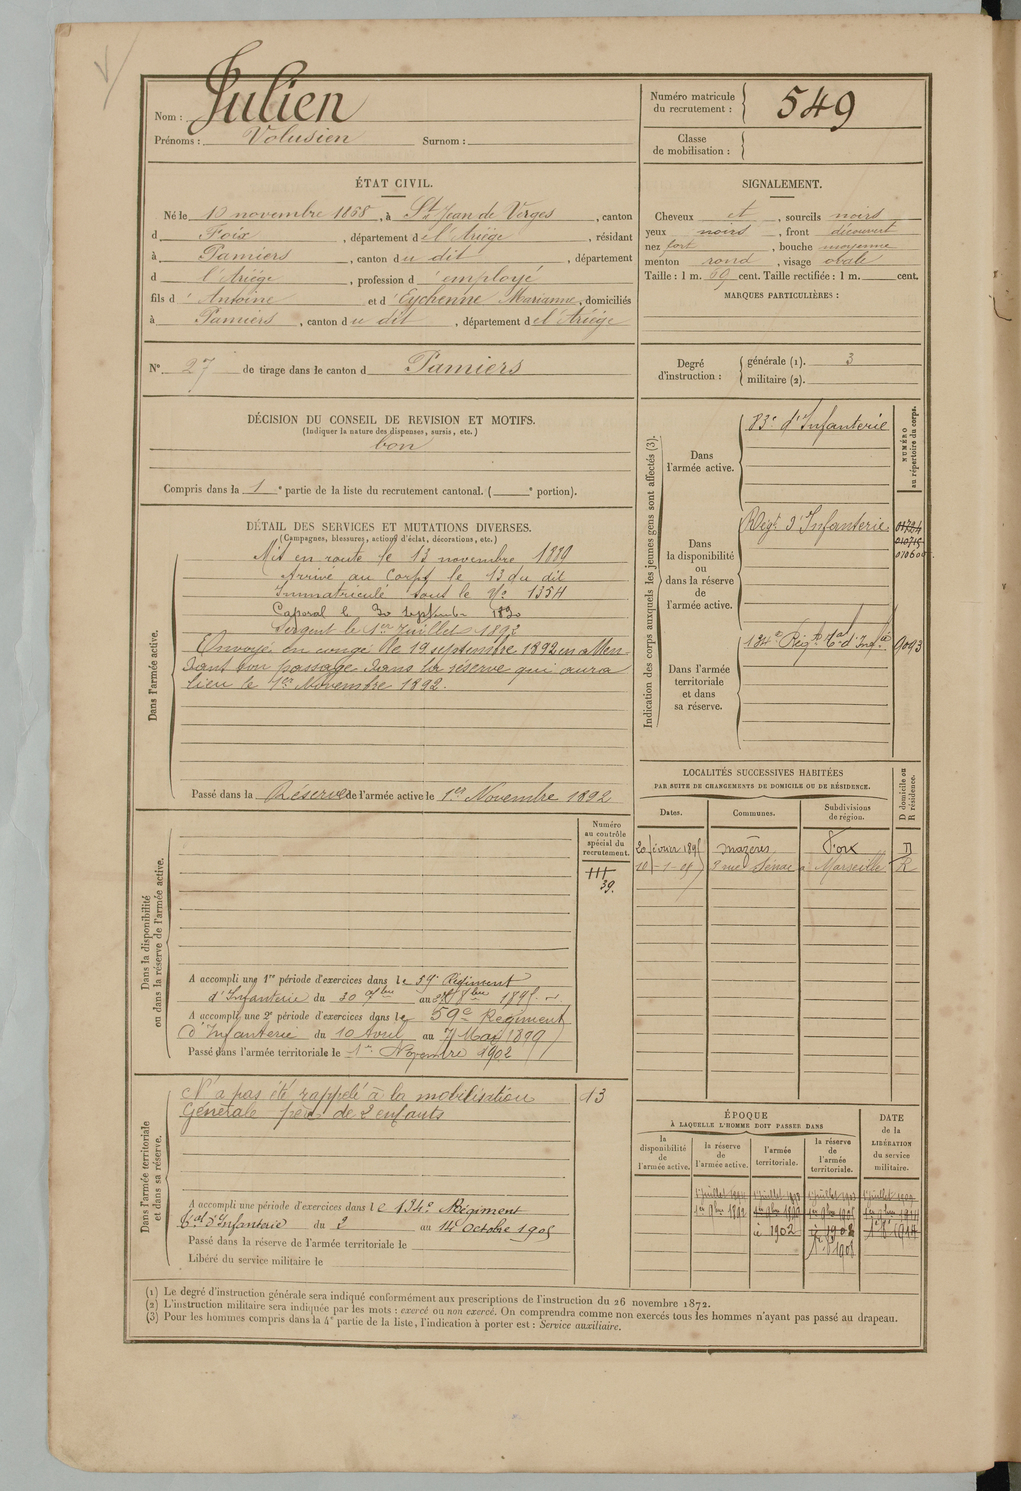 Nom : Julien
Prénoms : Volusien Surnom :
Numéro matricule
du recrutement : 549
Classe
de mobilisation :
ÉTAT CIVIL.
Né le 10 novembre 1868, à St Jean de Verges, canton
d Foix, département de l'Ariège, résidant
à Pamiers, canton du dit, département
d l'Ariège, profession d'employé
fils d'Antoine et d'Eychenne Marianne, domiciliés
à Pamiers, canton du dit, département de l'Ariège
N° 27 de tirage dans le canton d Pamiers
SIGNALEMENT.
Cheveux et, sourcils noirs
yeux noirs, front découvert
nez fort, bouche moyenne
menton rond, visage ovale
Taille : 1 m. 69 cent. Taille rectifiée : 1 m. cent.
MARQUES PARTICULIÈRES :
Degré
d'instruction :
générale (1). 3
militaire (2).
DÉCISION DU CONSEIL DE REVISION ET MOTIFS.
(Indiquer la nature des dispenses, sursis, etc.)
bon
Compris dans la 1e partie de la liste du recrutement cantonal. ( e portion).
DÉTAIL DES SERVICES ET MUTATIONS DIVERSES.
(Campagnes, blessures, actions d'éclat, décorations, etc.)
Dans l'armée active.
Mis en route le 13 novembre 1889
Arrivé au Corps le 13 du dit
Immatriculé sous le No 1354
Caporal le 30 septembre 1890
Sergent le 1er Juillet 1892
Envoyé en congé le 19 septembre 1892 en atten-
dant son passage dans la réserve qui aura
lieu le 1er Novembre 1892.
Passé dans la Réserve de l'armée active le 1er Novembre 1892
Indication des corps auxquels les jeunes gens sont affectés (3).
NUMÉRO
au répertoire du corps.
Dans
l'armée active.
83e d'Infanterie
Dans
la disponibilité
ou
dans la réserve
de
l'armée active.
Régt d'Infanterie
Dans l'armée
territoriale
et dans
sa réserve.
134e Régt Tal d'Infie 9093
LOCALITÉS SUCCESSIVES HABITÉES
PAR SUITE DE CHANGEMENTS DE DOMICILE OU DE RÉSIDENCE.
Dates. Communes. Subdivisions
de région. D domicile ou
R résidence.
20 février 1895 Mazères Foix D
8 rue Sénac à Marseille R
Dans la disponibilité
ou dans la réserve de l'armée active.
Numéro
au contrôle
spécial du
recrutement.
111
39.
A accompli une 1re période d'exercices dans le 59e Régiment
d'Infanterie du 30 7bre au 8bre 1895
A accompli une 2e période d'exercices dans le 59e Régiment
d'Infanterie du 10 Avril au 7 Mai 1899
Passé dans l'armée territoriale le 1er Novembre 1902
Dans l'armée territoriale
et dans sa réserve.
N'a pas été rappelé à la mobilisation 13
Générale père de 2 enfants
A accompli une période d'exercices dans le 134e Régiment
Tal d'Infanterie du 2 au 14 Octobre 1905
Passé dans la réserve de l'armée territoriale le
Libéré du service militaire le
ÉPOQUE
À LAQUELLE L'HOMME DOIT PASSER DANS
la
disponibilité
de
l'armée active.
la réserve
de
l'armée active.
l'armée
territoriale.
la réserve
de
l'armée
territoriale.
DATE
de la
LIBÉRATION
du service
militaire.
1er 9bre 1892
1902
1908
(1) Le degré d'instruction générale sera indiqué conformément aux prescriptions de l'instruction du 26 novembre 1872.
(2) L'instruction militaire sera indiquée par les mots : exercé ou non exercé. On comprendra comme non exercés tous les hommes n'ayant pas passé au drapeau.
(3) Pour les hommes compris dans la 4e partie de la liste, l'indication à porter est : Service auxiliaire.